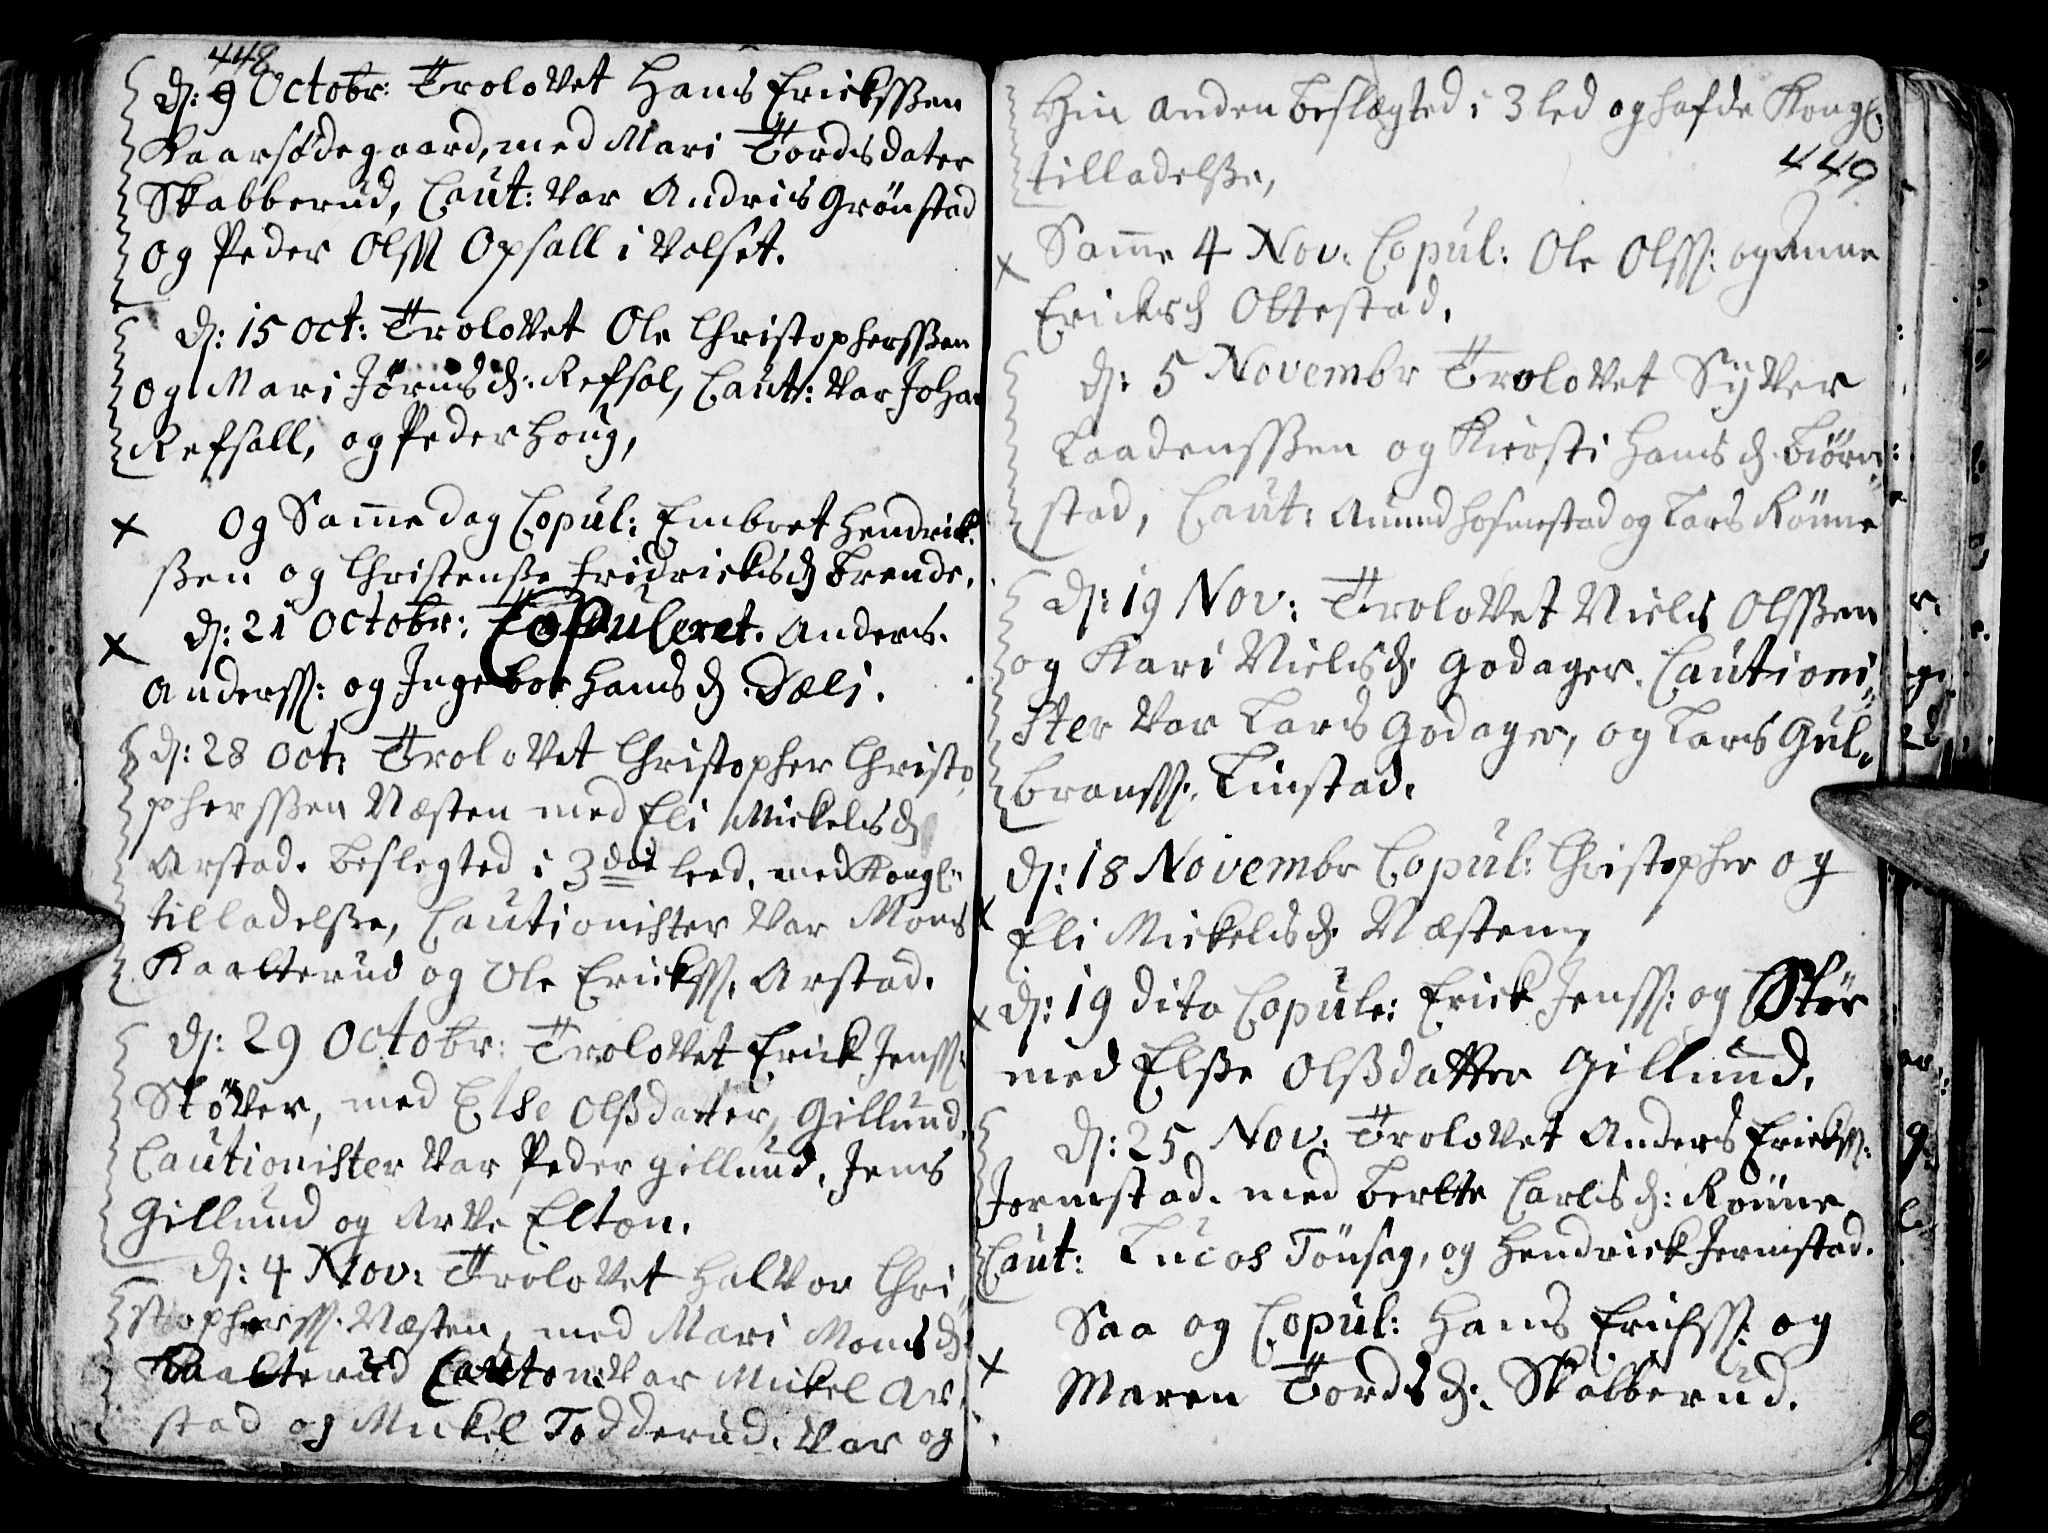 448
d: 9 Octobr: Trolovet Hans Erickssen
Kaarsødegaard, med Mari Tordsdater
Skabberud, Caut: var Andris Grönstad
og Peder Olss Opsall i Valset.
d: 15 Oct: Trolovet Ole Christopherssen
og Mari Jörnsd: Refsal, Caut: var Johan
Refsall, og Peder Houg,
x Og Samme dag Copul: Embret Hendrick-
ssen og Christensse Fridricksd Brende.
x d: 21 Octobr: Copuleret. Anders.
Anderss: og Ingebor Hansd. Dæli.
d: 28 Oct: Trolovet Christopher Christo-
pherssen Næsten med Eli Mickelsd
Arstad. beslegted i 3die leed, med Kongl:
tilladelsse, Cautionister var Mons
Kaalterud og Ole Erickss. Arstad.
d: 29 Octobr: Trolovet Erick Jenss:
Støver, med Else Olsdatter, Gillund,
Cautionister var Peder Gillund, Jens
Gillund og Arve Elton.
d: 4 Nov: Trolovet Halvor Chri-
stopherss. Næsten, med Mari Monsd:
Kaalterud Caution: var Mickel Ar-
stad og Mickel Todderud. var og
Hin anden beslægted i 3 led og hafde Kongl:
449
tilladelsse,
x Samme 4 Nov. Copul: Ole Olss: og Anne
Ericksd Ottestad.
d: 5 Novembr Trolovet Syver
Laadenssen og Kirsti Hansd. Biørn-
stad, Caut: Amund Hofmestad og Lars Rönne
d: 19 Nov: Trolovet Niels Olssen
og Kari Nielsd. Godager. Cautioni-
ster var Lars Godager, og Lars Gul-
branss. Linstad.
x d: 18 Novembr Copul: Christopher og
Eli Mickelsd. Næsten
x d: 19 dito Copule: Erick Jenss: og Stör
med Elsse Olsdatter Gillund.
d: 25 Nov: Trolovet Anders Erickss:
Jermstad. med Berte Carlsd: Rönne
Caut: Lucas Tönsag, og Hendrick Jermstad.
x Saa og Copul: Hans Erichss: og
Maren Tordsd: Skabberud.